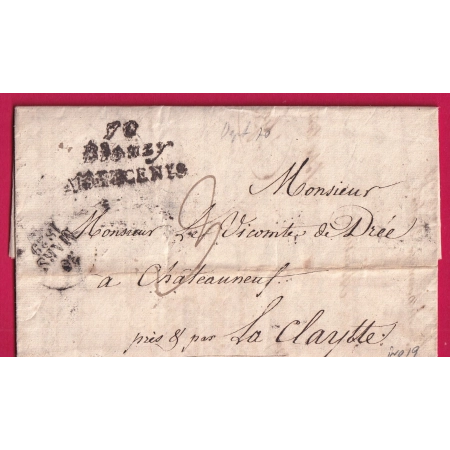 70
Blanzy
Monsieur
Monsieur Le Vicomte de Drée
a Châteauneuf
près & par La Clayette